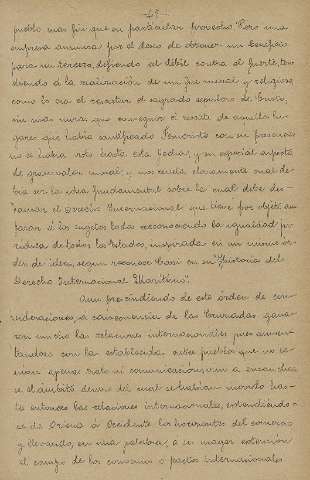 - 43 -
pueblo más fin que su particular provecho. Pero una
empresa ansiosa por el deseo de obtener un beneficio
para un tercero, defendiendo al débil contra el fuerte, ten-
diendo á la realización de un fin moral y religioso
como lo era el rescatar el sagrado sepulcro de Cristo,
sin más miras que conseguir el rescate de aquellos lu-
gares que había santificado Jesucristo con su presencia
no se había visto hasta esta fecha, y su especial aspecto
de generosidad moral y nos revela claramente cual de-
bía ser la idea fundamental sobre la cual debe des-
cansar el Derecho Internacional que tiene por objeto am-
parar á los sujetos todos reconociendo la igualdad ju-
rídica de todos los Estados, inspirada en un mismo or-
den de ideas, según reconoce Cussi en su "Historia del
Derecho Internacional Marítimo".
Aun prescindiendo de este órden de con-
sideraciones, á consecuencia de las Cruzadas, gana-
ron mucho las relaciones internacionales pues aumen-
tandose con la establecida entre pueblos que no te-
nían apenas trato ni comunicación, vino á ensanchar-
se el ámbito dentro del cual se habían movido has-
ta entonces las relaciones internacionales, extendiéndo-
se de Oriente á Occidente los horizontes del comercio
y llevando, en una palabra, á su mayor extensión
el campo de los convenios o pactos internacionales